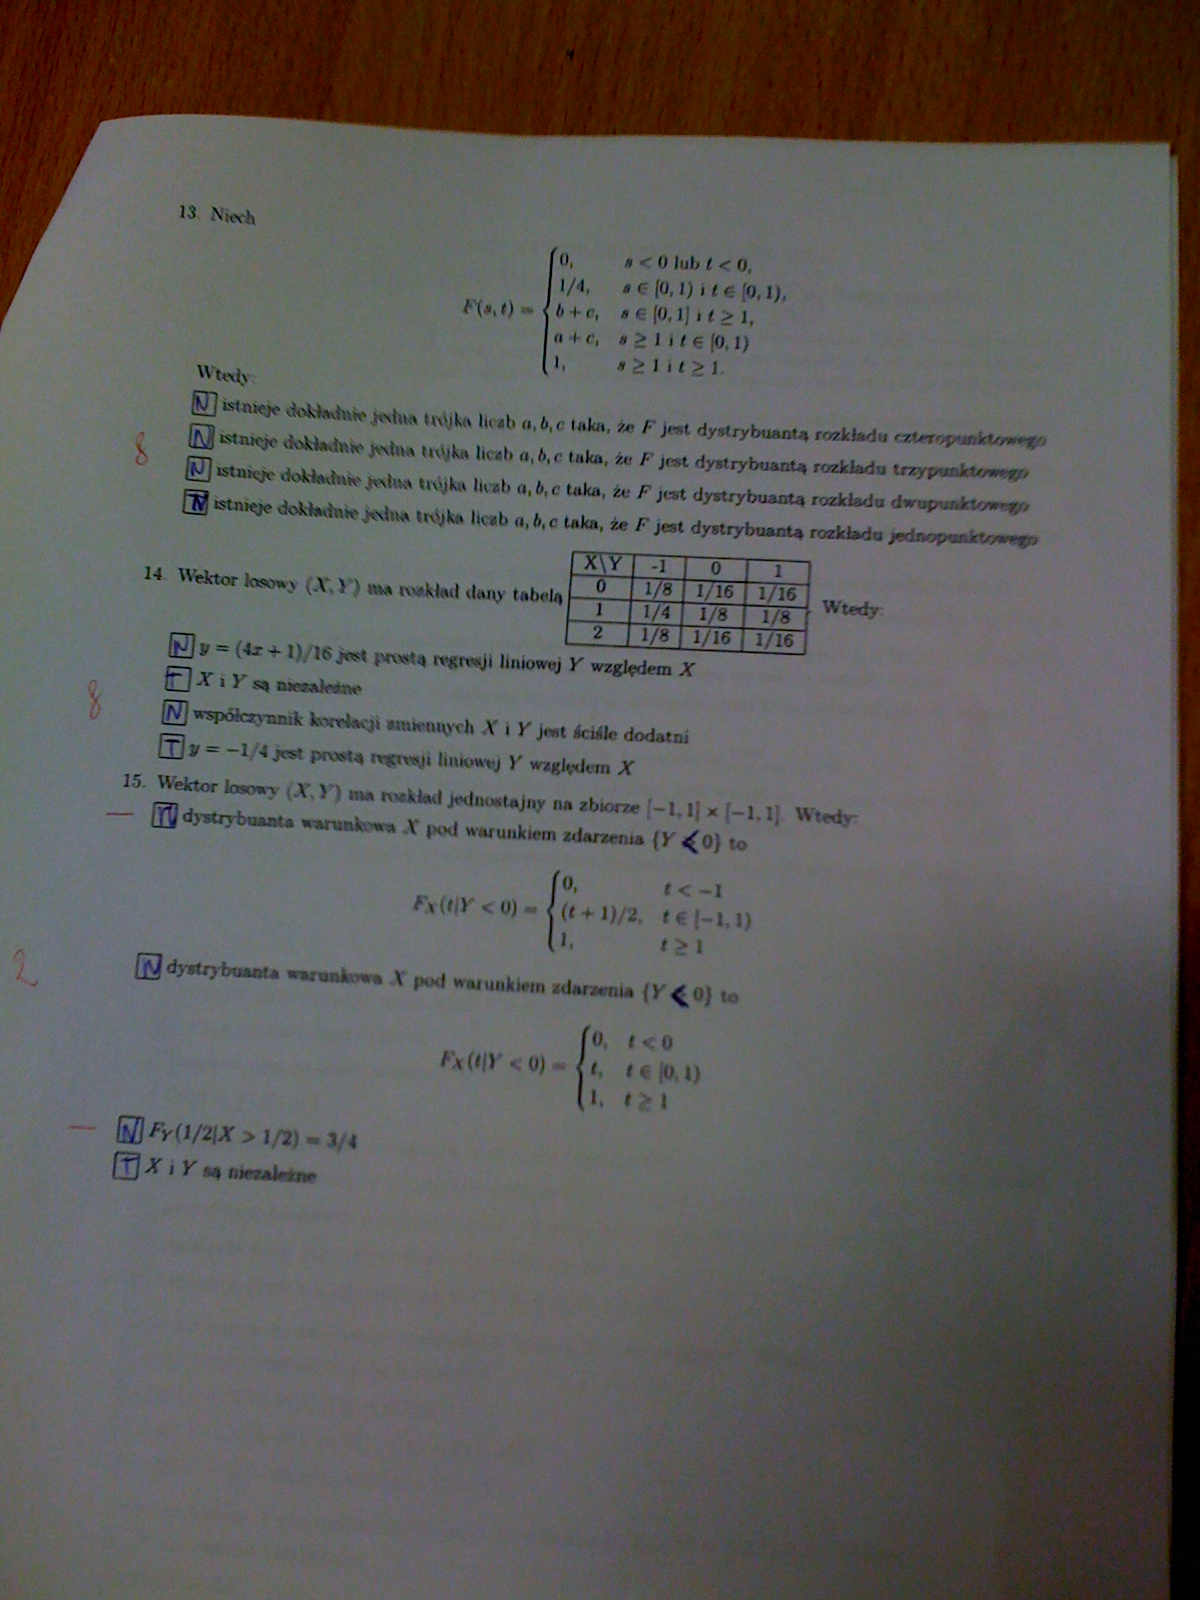 13. Niech
F(s,t) = { 0, s < 0 lub t < 0,
1/4, s ∈ [0,1) i t ∈ [0,1),
b + c, s ∈ [0,1] i t ≥ 1,
a + c, s ≥ 1 i t ∈ [0,1)
1, s ≥ 1 i t ≥ 1.
Wtedy:
N istnieje dokładnie jedna trójka liczb a, b, c taka, że F jest dystrybuantą rozkładu czteropunktowego
8
N istnieje dokładnie jedna trójka liczb a, b, c taka, że F jest dystrybuantą rozkładu trzypunktowego
N istnieje dokładnie jedna trójka liczb a, b, c taka, że F jest dystrybuantą rozkładu dwupunktowego
N istnieje dokładnie jedna trójka liczb a, b, c taka, że F jest dystrybuantą rozkładu jednopunktowego
14. Wektor losowy (X, Y) ma rozkład dany tabelą
X\Y -1 0 1
0 1/8 1/16 1/16
1 1/4 1/8 1/8
2 1/8 1/16 1/16
. Wtedy:
N y = (4x + 1)/16 jest prostą regresji liniowej Y względem X
T X i Y są niezależne
8
N współczynnik korelacji zmiennych X i Y jest ściśle dodatni
T y = −1/4 jest prostą regresji liniowej Y względem X
15. Wektor losowy (X, Y) ma rozkład jednostajny na zbiorze [−1, 1] × [−1, 1]. Wtedy:
— dystrybuanta warunkowa X pod warunkiem zdarzenia {Y < 0} to
F_X(t|Y < 0) = { 0, t < −1
(t + 1)/2, t ∈ [−1, 1)
1, t ≥ 1
2
N dystrybuanta warunkowa X pod warunkiem zdarzenia {Y < 0} to
F_X(t|Y < 0) = { 0, t < 0
t, t ∈ [0, 1)
1, t ≥ 1
— N F_Y(1/2|X > 1/2) = 3/4
T X i Y są niezależne